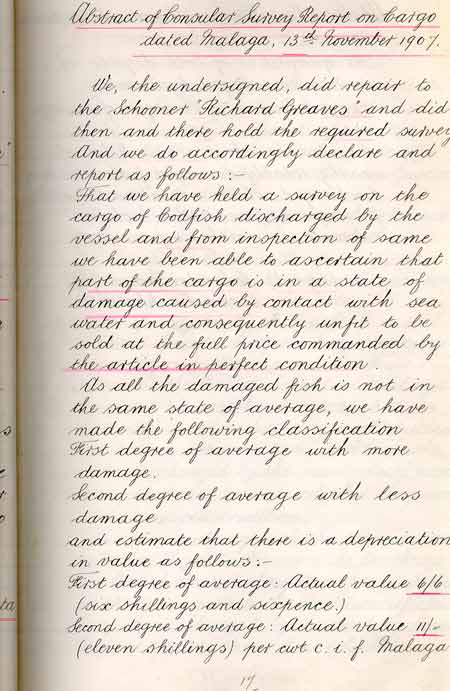 Abstract of Consular Survey Report on Cargo
dated Malaga, 13th November 1907.
We, the undersigned, did repair to
the Schooner "Richard Greaves" and did
then and there hold the required survey
And we do accordingly declare and
report as follows :-
That we have held a survey on the
cargo of Codfish discharged by the
vessel and from inspection of same
we have been able to ascertain that
part of the cargo is in a state of
damage caused by contact with sea
water and consequently unfit to be
sold at the full price commanded by
the article in perfect condition.
As all the damaged fish is not in
the same state of average, we have
made the following classification
First degree of average with more
damage.
Second degree of average with less
damage
and estimate that there is a depreciation
in value as follows :-
First degree of average: Actual value 6/6
(six shillings and sixpence.)
Second degree of average: Actual value 11/-
(eleven shillings) per cwt c. i. f. Malaga
17